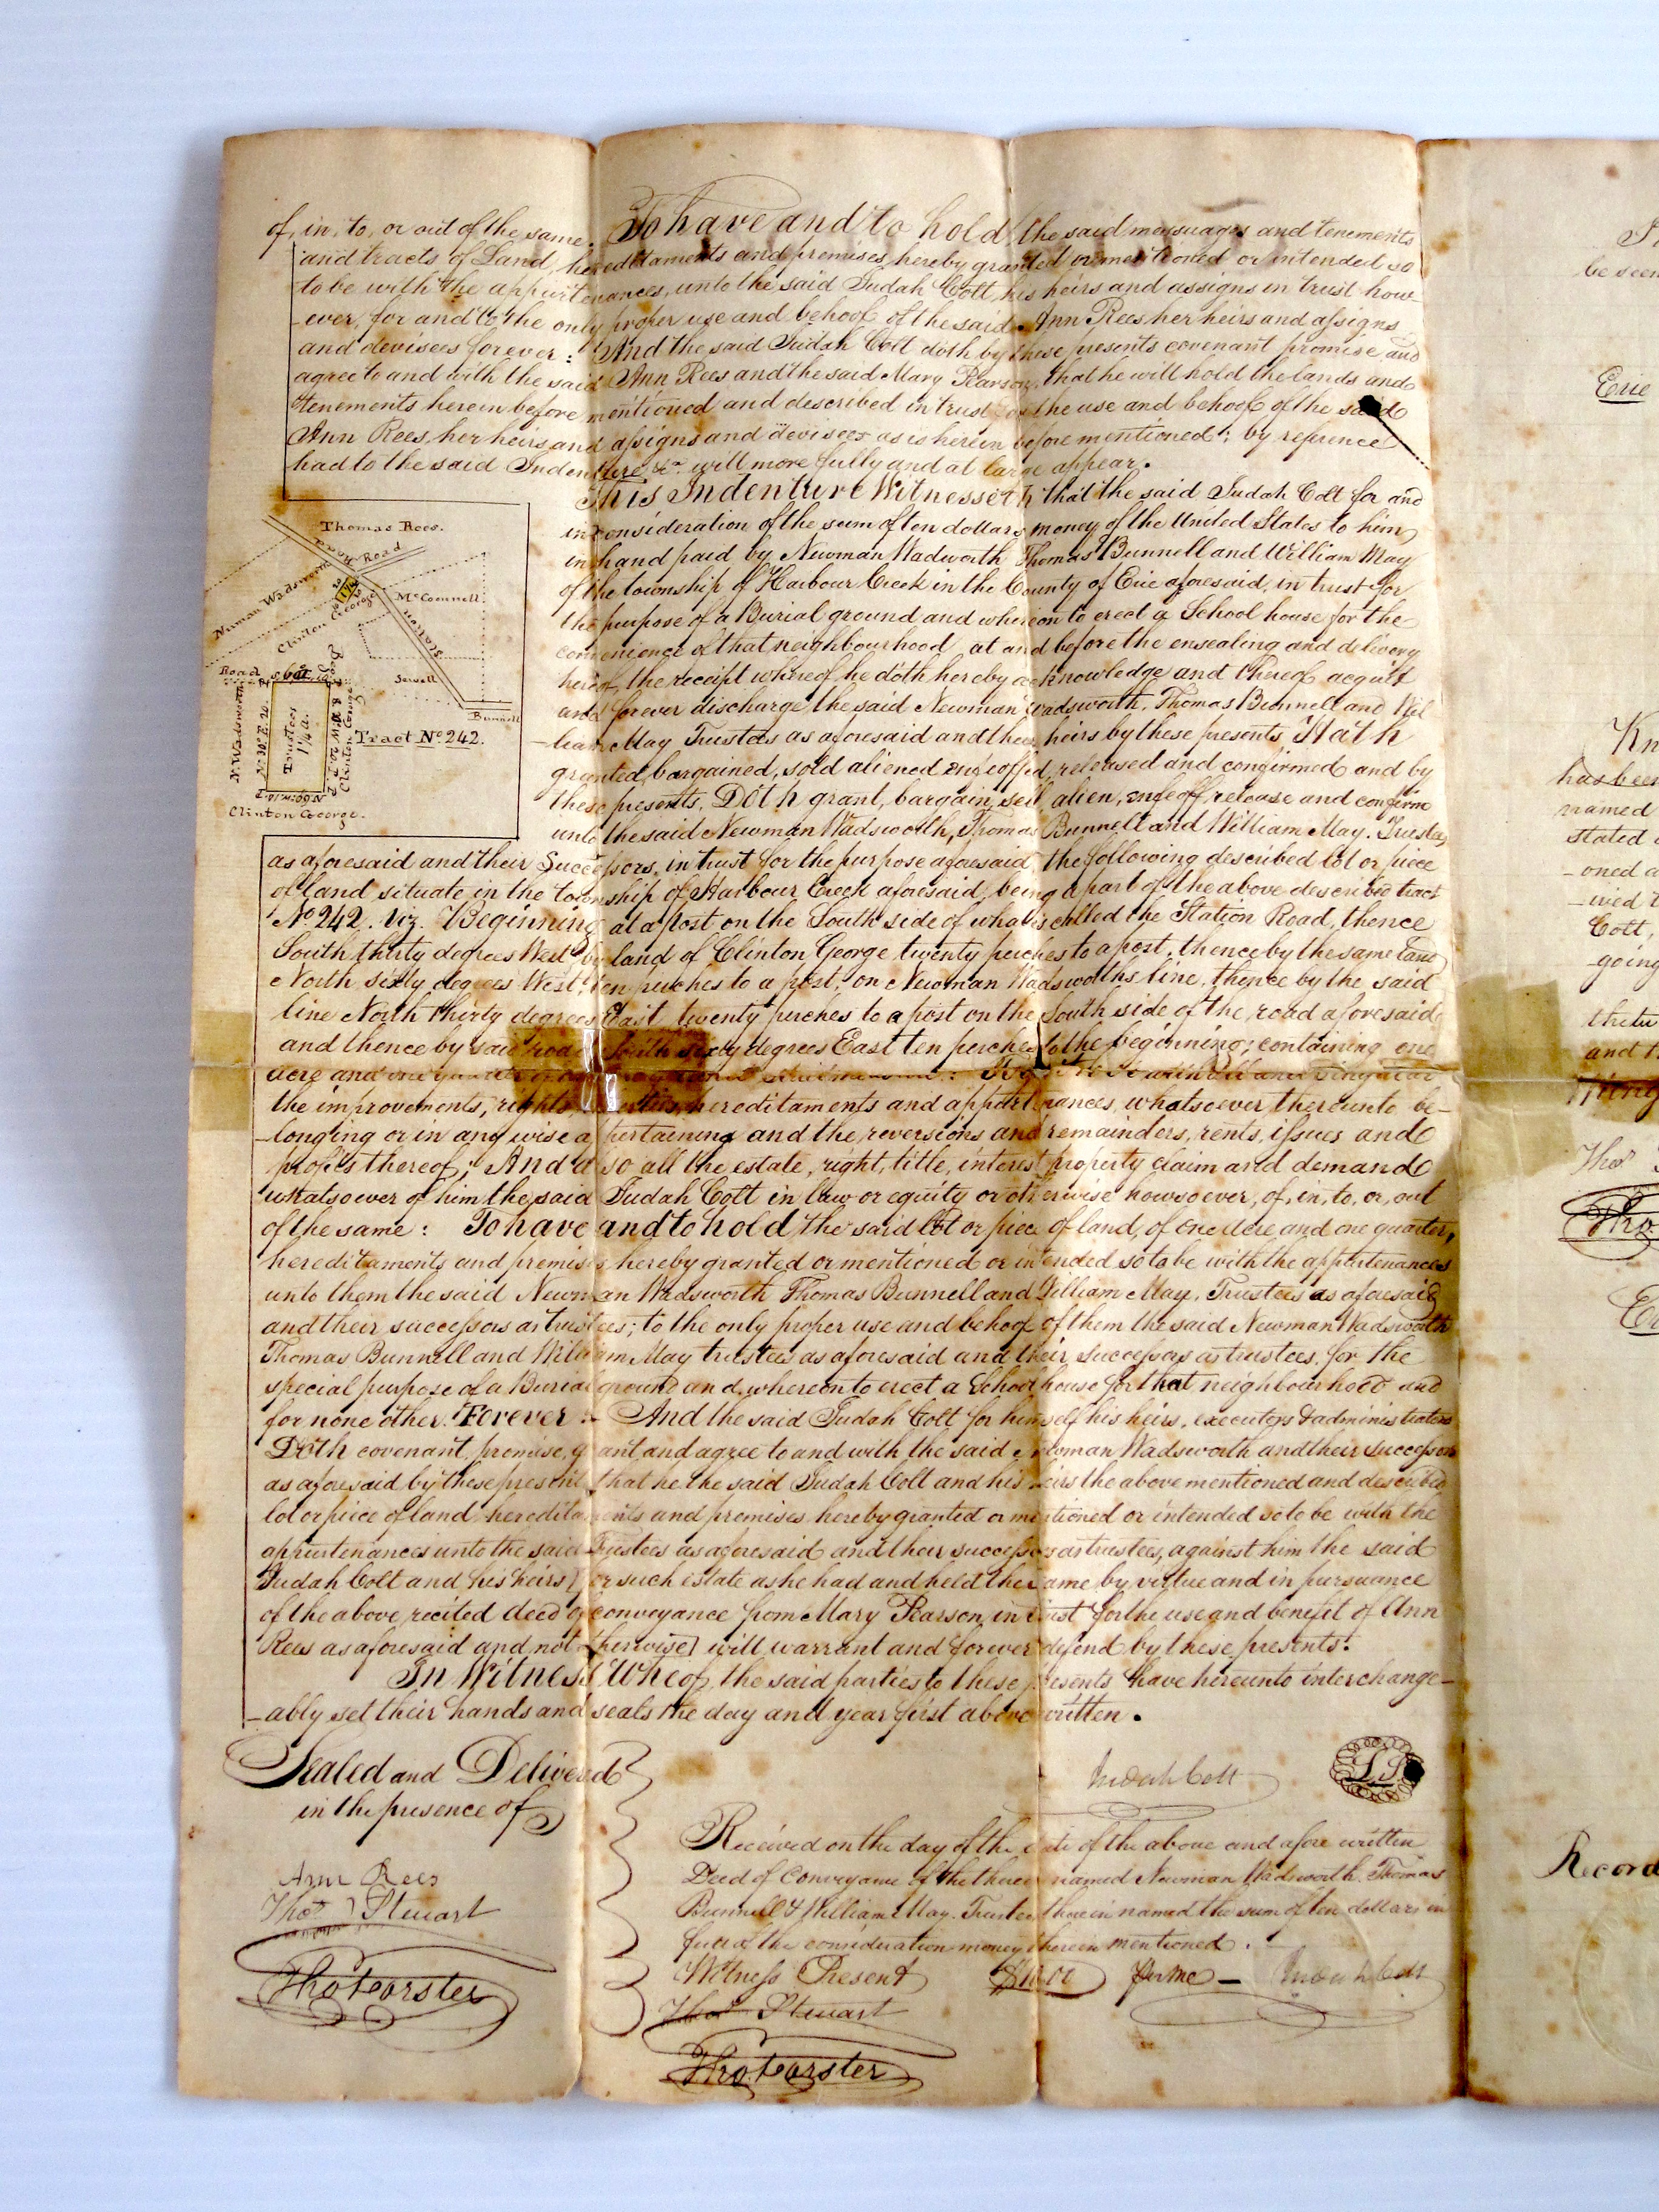 of, in, to, or out of the same. To have and to hold the said messuages and tenements
and tracts of Land, hereditaments and premises hereby granted or mentioned or intended so
to be with the appurtenances, unto the said Judah Colt, his heirs and assigns in trust how-
-ever, for and to the only proper use and behoof of the said Ann Rees her heirs and assigns
and devisees forever: And the said Judah Colt doth by these presents covenant promise and
agree to and with the said Ann Rees and the said Mary Pearson, that he will hold the lands and
tenements herein before mentioned and described in trust to the use and behoof of the said
Ann Rees, her heirs and assigns and devisees as is herein before mentioned; by reference
had to the said Indenture &c. will more fully and at large appear.
This Indenture Witnesseth that the said Judah Colt for and
in consideration of the sum of ten dollars money of the United States to him
in hand paid by Newman Wadworth Thomas Bunnell and William May
of the township of Harbour Creek in the County of Erie aforesaid, in trust for
the purpose of a Burial ground and whereon to erect a School house for the
convenience of that neighbourhood at and before the ensealing and delivery
hereof, the receipt whereof he doth hereby acknowledge and thereof acquit
and forever discharge the said Newman Wadsworth, Thomas Bunnell and Wil
-liam May Trustees as aforesaid and their heirs by these presents Hath
granted, bargained, sold aliened enfeoffed, released and confirmed and by
these presents, Doth grant, bargain, sell, alien, enfeoff, release and confirm
unto the said Newman Wadsworth, Thomas Bunnell and William May, Trustees
Thomas Rees.
Road
Numan Wadsworth
1 1/4
Clinton George
McConnell
Station
Sewell
Bunnell
Road
S. 60. E. 10.
Beg
N. Wadsworth
N. 30. E. 20.
Trustees
1 1/4 a.
S. 30. W. 20. P.
Clinton George
Tract No 242.
N. 60. W. 10. P
Clinton George.
as aforesaid and their Successors, in trust for the purpose aforesaid, the following described lot or piece
of land situate in the township of Harbour Creek aforesaid; being a part of the above described tract
No 242. Viz. Beginning at a post on the South side of what is called the Station Road, thence
South thirty degrees West by land of Clinton George twenty perches to a post, thence by the same land
North sixty degrees West, ten perches to a post, on Newman Wadsworths line, thence by the said
line North thirty degrees East twenty perches to a post on the South side of the road aforesaid
and thence by said road South sixty degrees East ten perches to the beginning; containing one
acre and one quarter Together with all and singular
the improvements, rights, hereditaments and appurtenances whatsoever thereunto be-
-longing or in any wise appertaining and the reversions and remainders, rents, issues and
profits thereof; And also all the estate, right, title, interest property claim and demand
whatsoever of him the said Judah Colt in law or equity or otherwise howsoever, of, in, to, or, out
of the same: To have and to hold the said lot or piece of land, of one acre and one quarter,
hereditaments and premises hereby granted or mentioned or intended so to be with the appurtenances
unto them the said Newman Wadsworth Thomas Bunnell and William May, Trustees as aforesaid
and their successors as trustees; to the only proper use and behoof of them the said Newman Wadsworth
Thomas Bunnell and William May trustees as aforesaid and their successors as trustees, for the
special purpose of a Burial ground and, whereon to erect a School house for that neighbourhood and
for none other. Forever :- And the said Judah Colt for himself his heirs, executors & administrators
Doth covenant, promise, grant and agree to and with the said Newman Wadsworth and their successors
as aforesaid by these presents that he the said Judah Colt and his heirs the above mentioned and described
lot or piece of land hereditaments and premises hereby granted or mentioned or intended so to be with the
appurtenances unto the said Trustees as aforesaid and their successors as trustees, against him the said
Judah Colt and his heirs [for such estate as he had and held the same by virtue and in pursuance
of the above recited deed of conveyance from Mary Pearson, in trust for the use and benefit of Ann
Rees as aforesaid and not otherwise] will warrant and forever defend by these presents.
In Witness Wheof, the said parties to these presents have hereunto interchange-
-ably set their hands and seals the day and year first above written.
Sealed and Delivered
in the presence of
Ann Rees
Thos Stewart
Tho Forster
Judah Colt
L.S.
Received on the day of the date of the above and afore written
Deed of Conveyance of the therein named Newman Wadsworth, Thomas
Bunnell & William May, Trustees therein named the sum of ten dollars in
full of the consideration money therein mentioned.
Witness Present $10.00 per me - Judah Colt
Thos Stewart
Tho Forster
be seen
Erie
Kn
has been
named
stated
-oned a
Colt,
going
and
Thos
Tho
Record